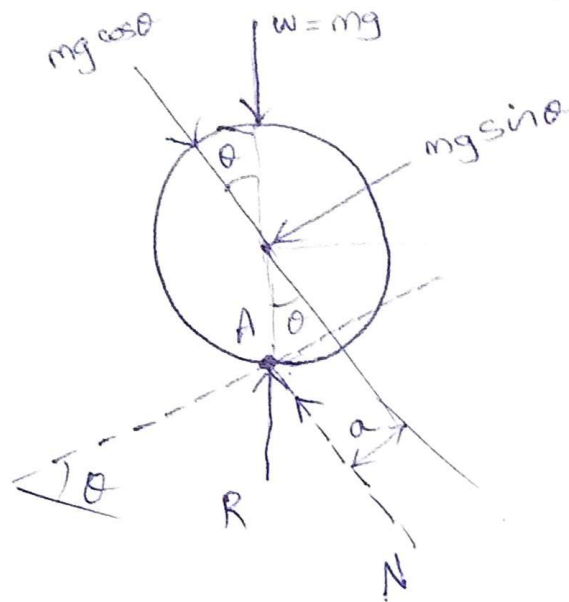 mg cosθ
w = mg
mg sinθ
θ
A
θ
a
θ
R
N